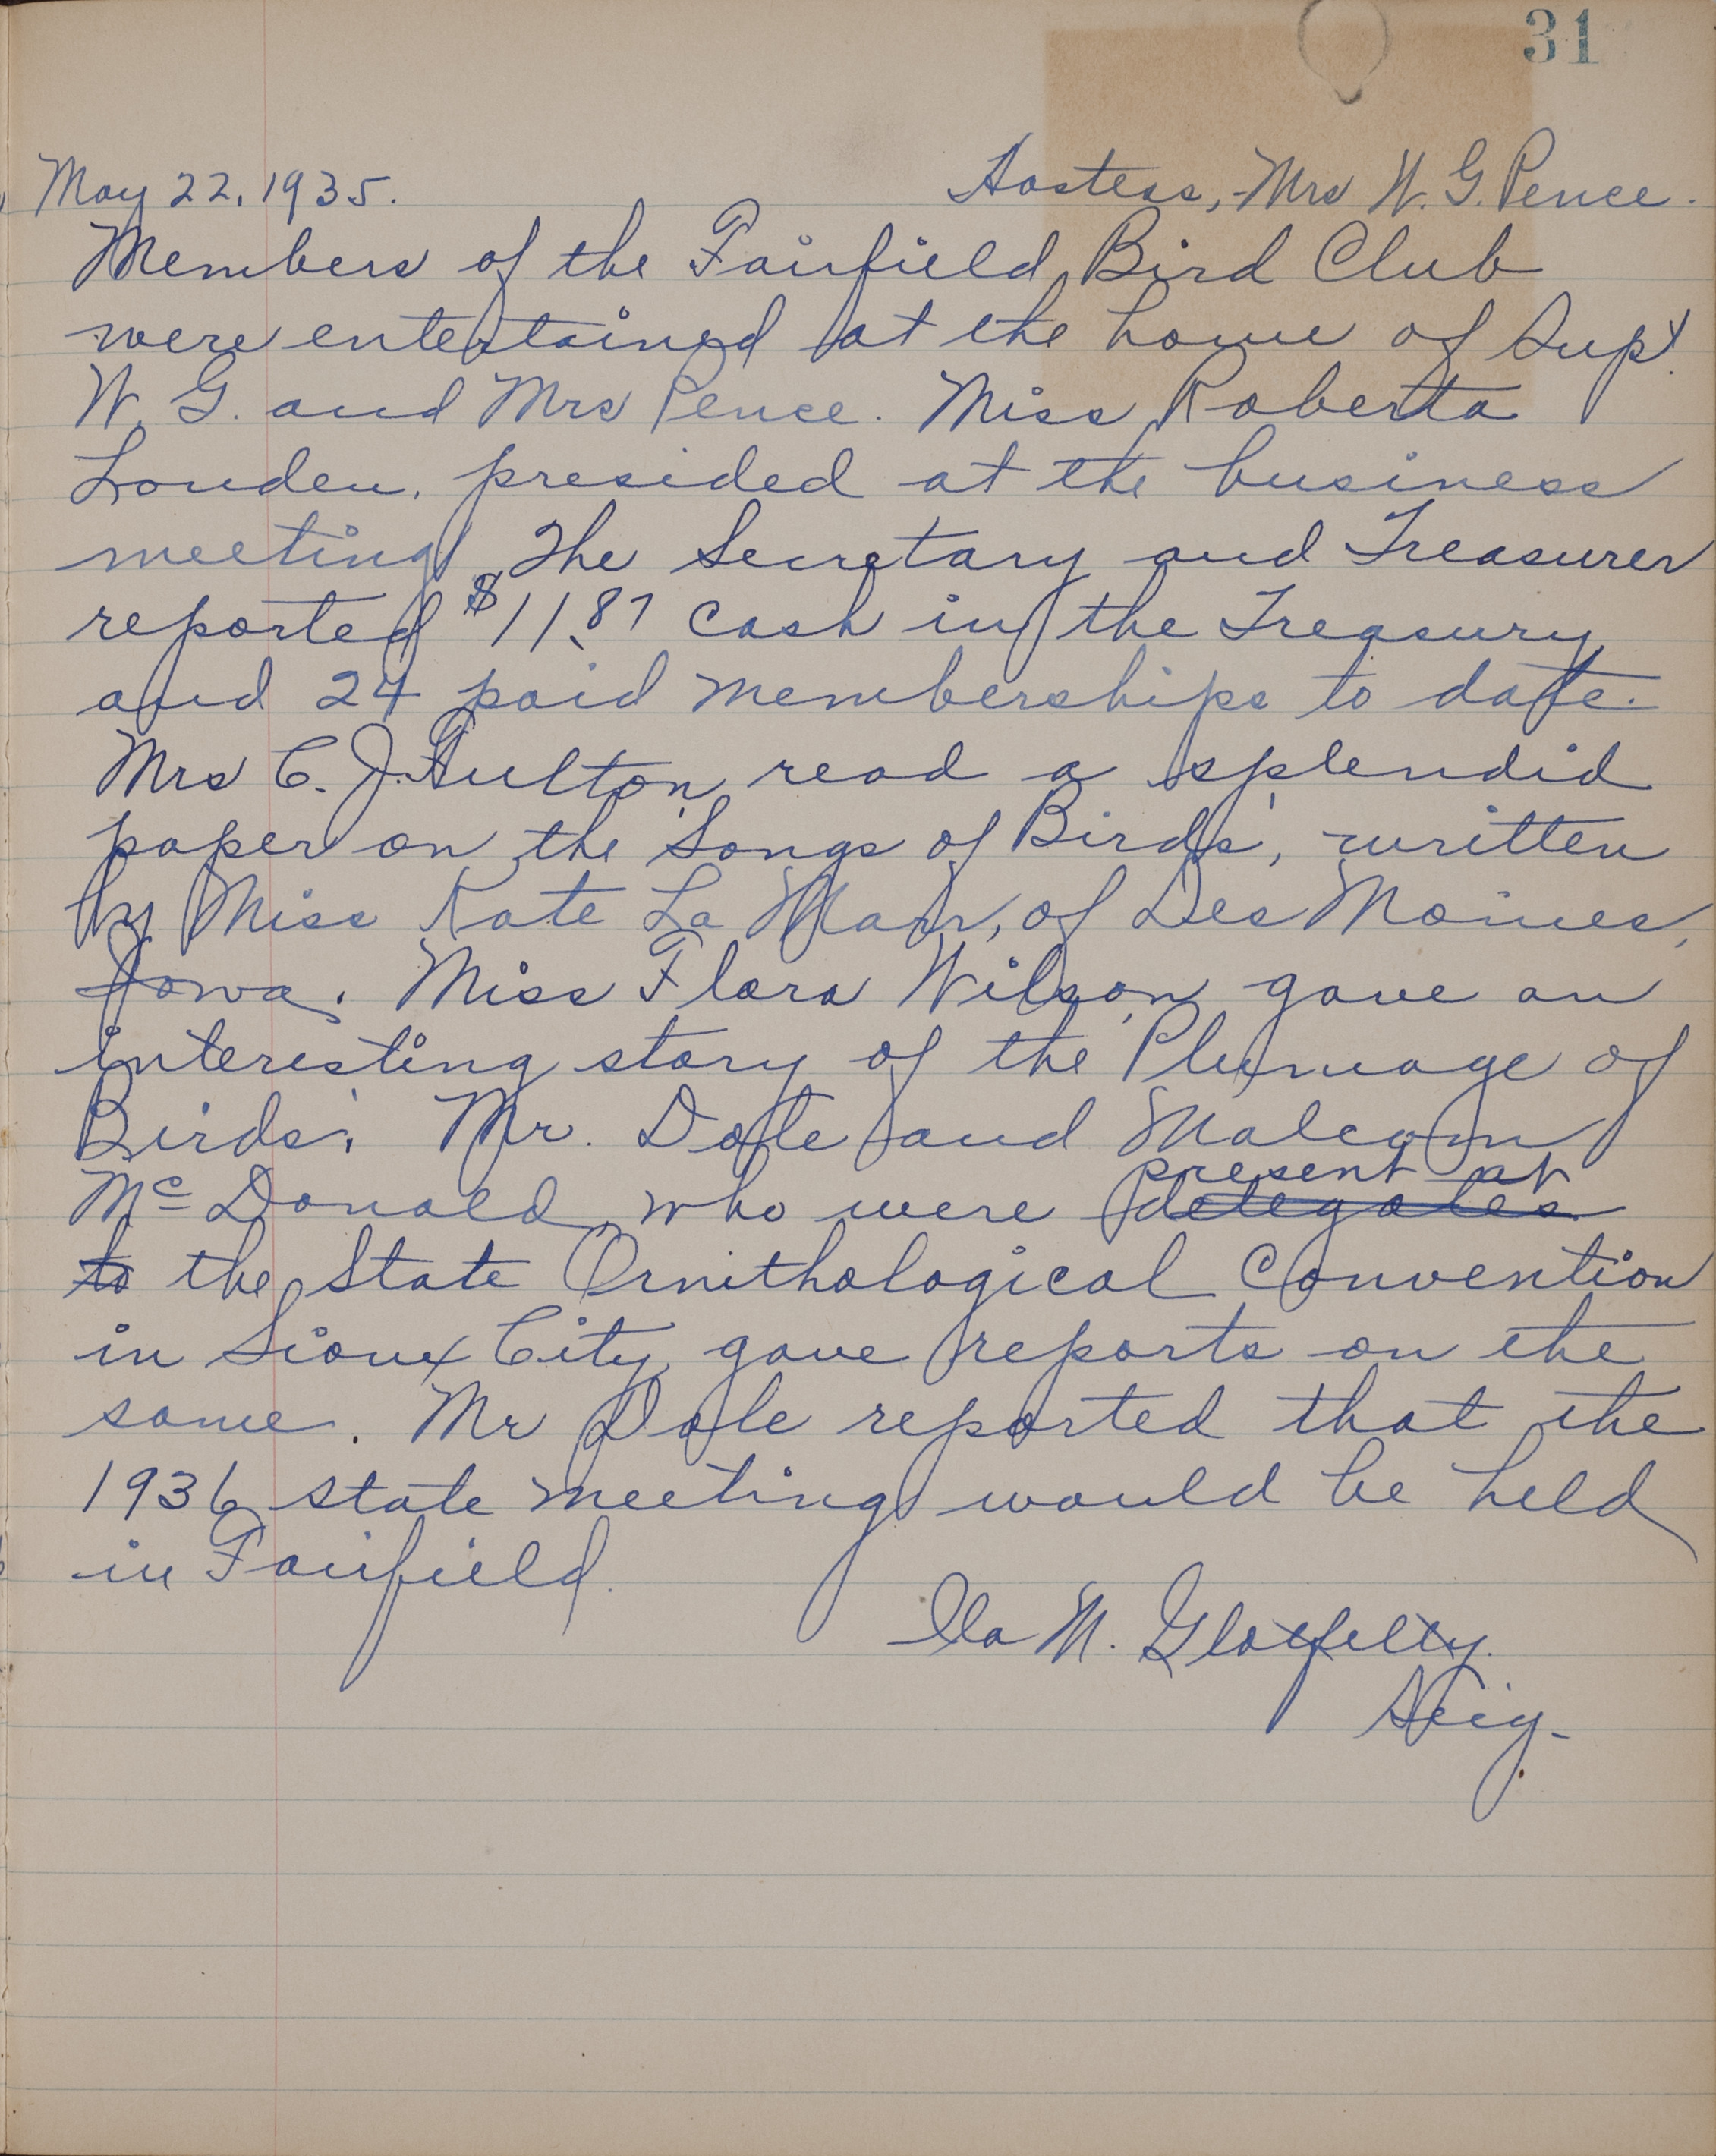 31
May 22, 1935. Hostess, - Mrs W. G. Pence.
Members of the Fairfield Bird Club
were entertained at the home of Supt.
W. G. and Mrs Pence. Miss Roberta
Louden, presided at the business
meeting. The Secretary and Treasurer
reported $11.87 cash in the Treasury
and 24 paid memberships to date.
Mrs C. J. Fulton, read a splendid
paper on the 'Songs of Birds', written
by Miss Kate La Marr, of Des Moines,
Iowa. Miss Flora Wilson, gave an
interesting story of the 'Plumage of
Birds'. Mr. Dole and Malcom
present at
McDonald, who were delegates
to the State Ornithological Convention
in Sioux City, gave reports on the
same. Mr Dole reported that the
1936 state meeting would be held
in Fairfield.
M. Glotfelty.